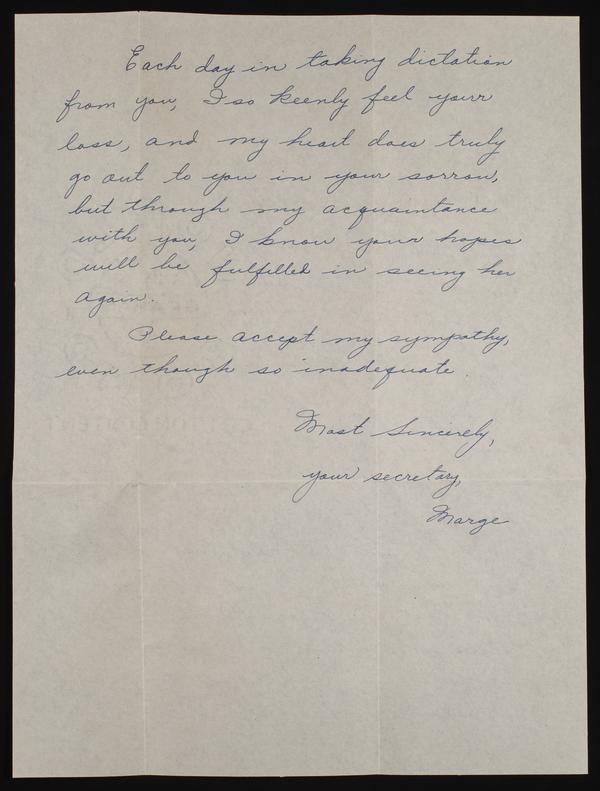 Each day in taking dictation
from you, I so keenly feel your
loss, and my heart does truly
go out to you in your sorrow,
but through my acquaintance
with you, I know your hopes
will be fulfilled in seeing her
again.
Please accept my sympathy,
even though so inadequate.
Most Sincerely,
your secretary,
Marge